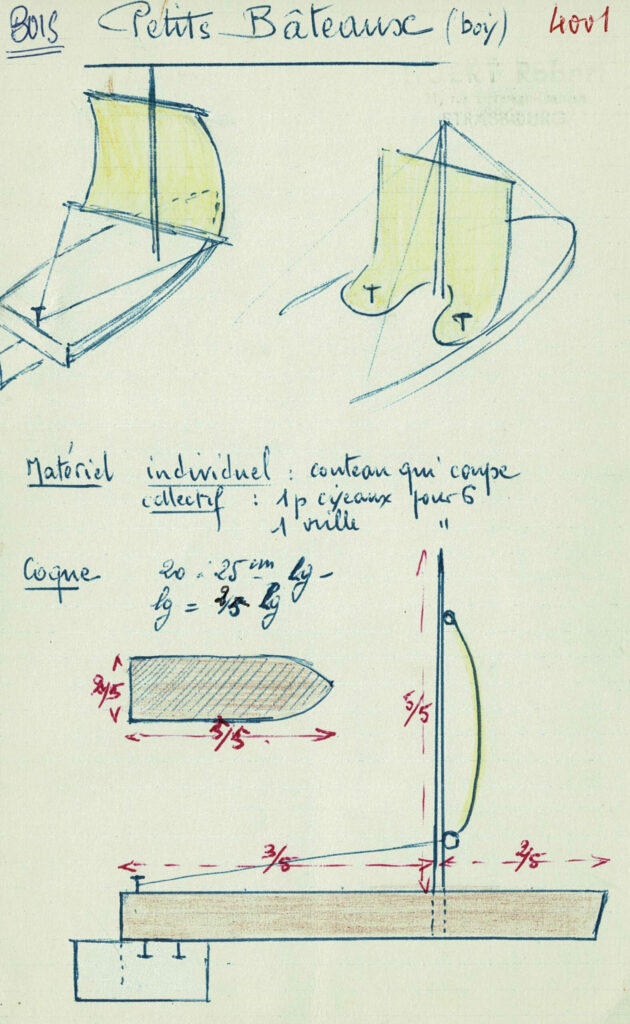 BOIS
Petits Bâteaux (bois) 4001
T
T
T
Matériel individuel : couteau qui coupe
collectif : 1 p ciseaux pour 6
1 vrille "
Coque 20 . 25 cm lg -
lg = 2/5 lg
2/5
5/5
5/5
3/5
2/5